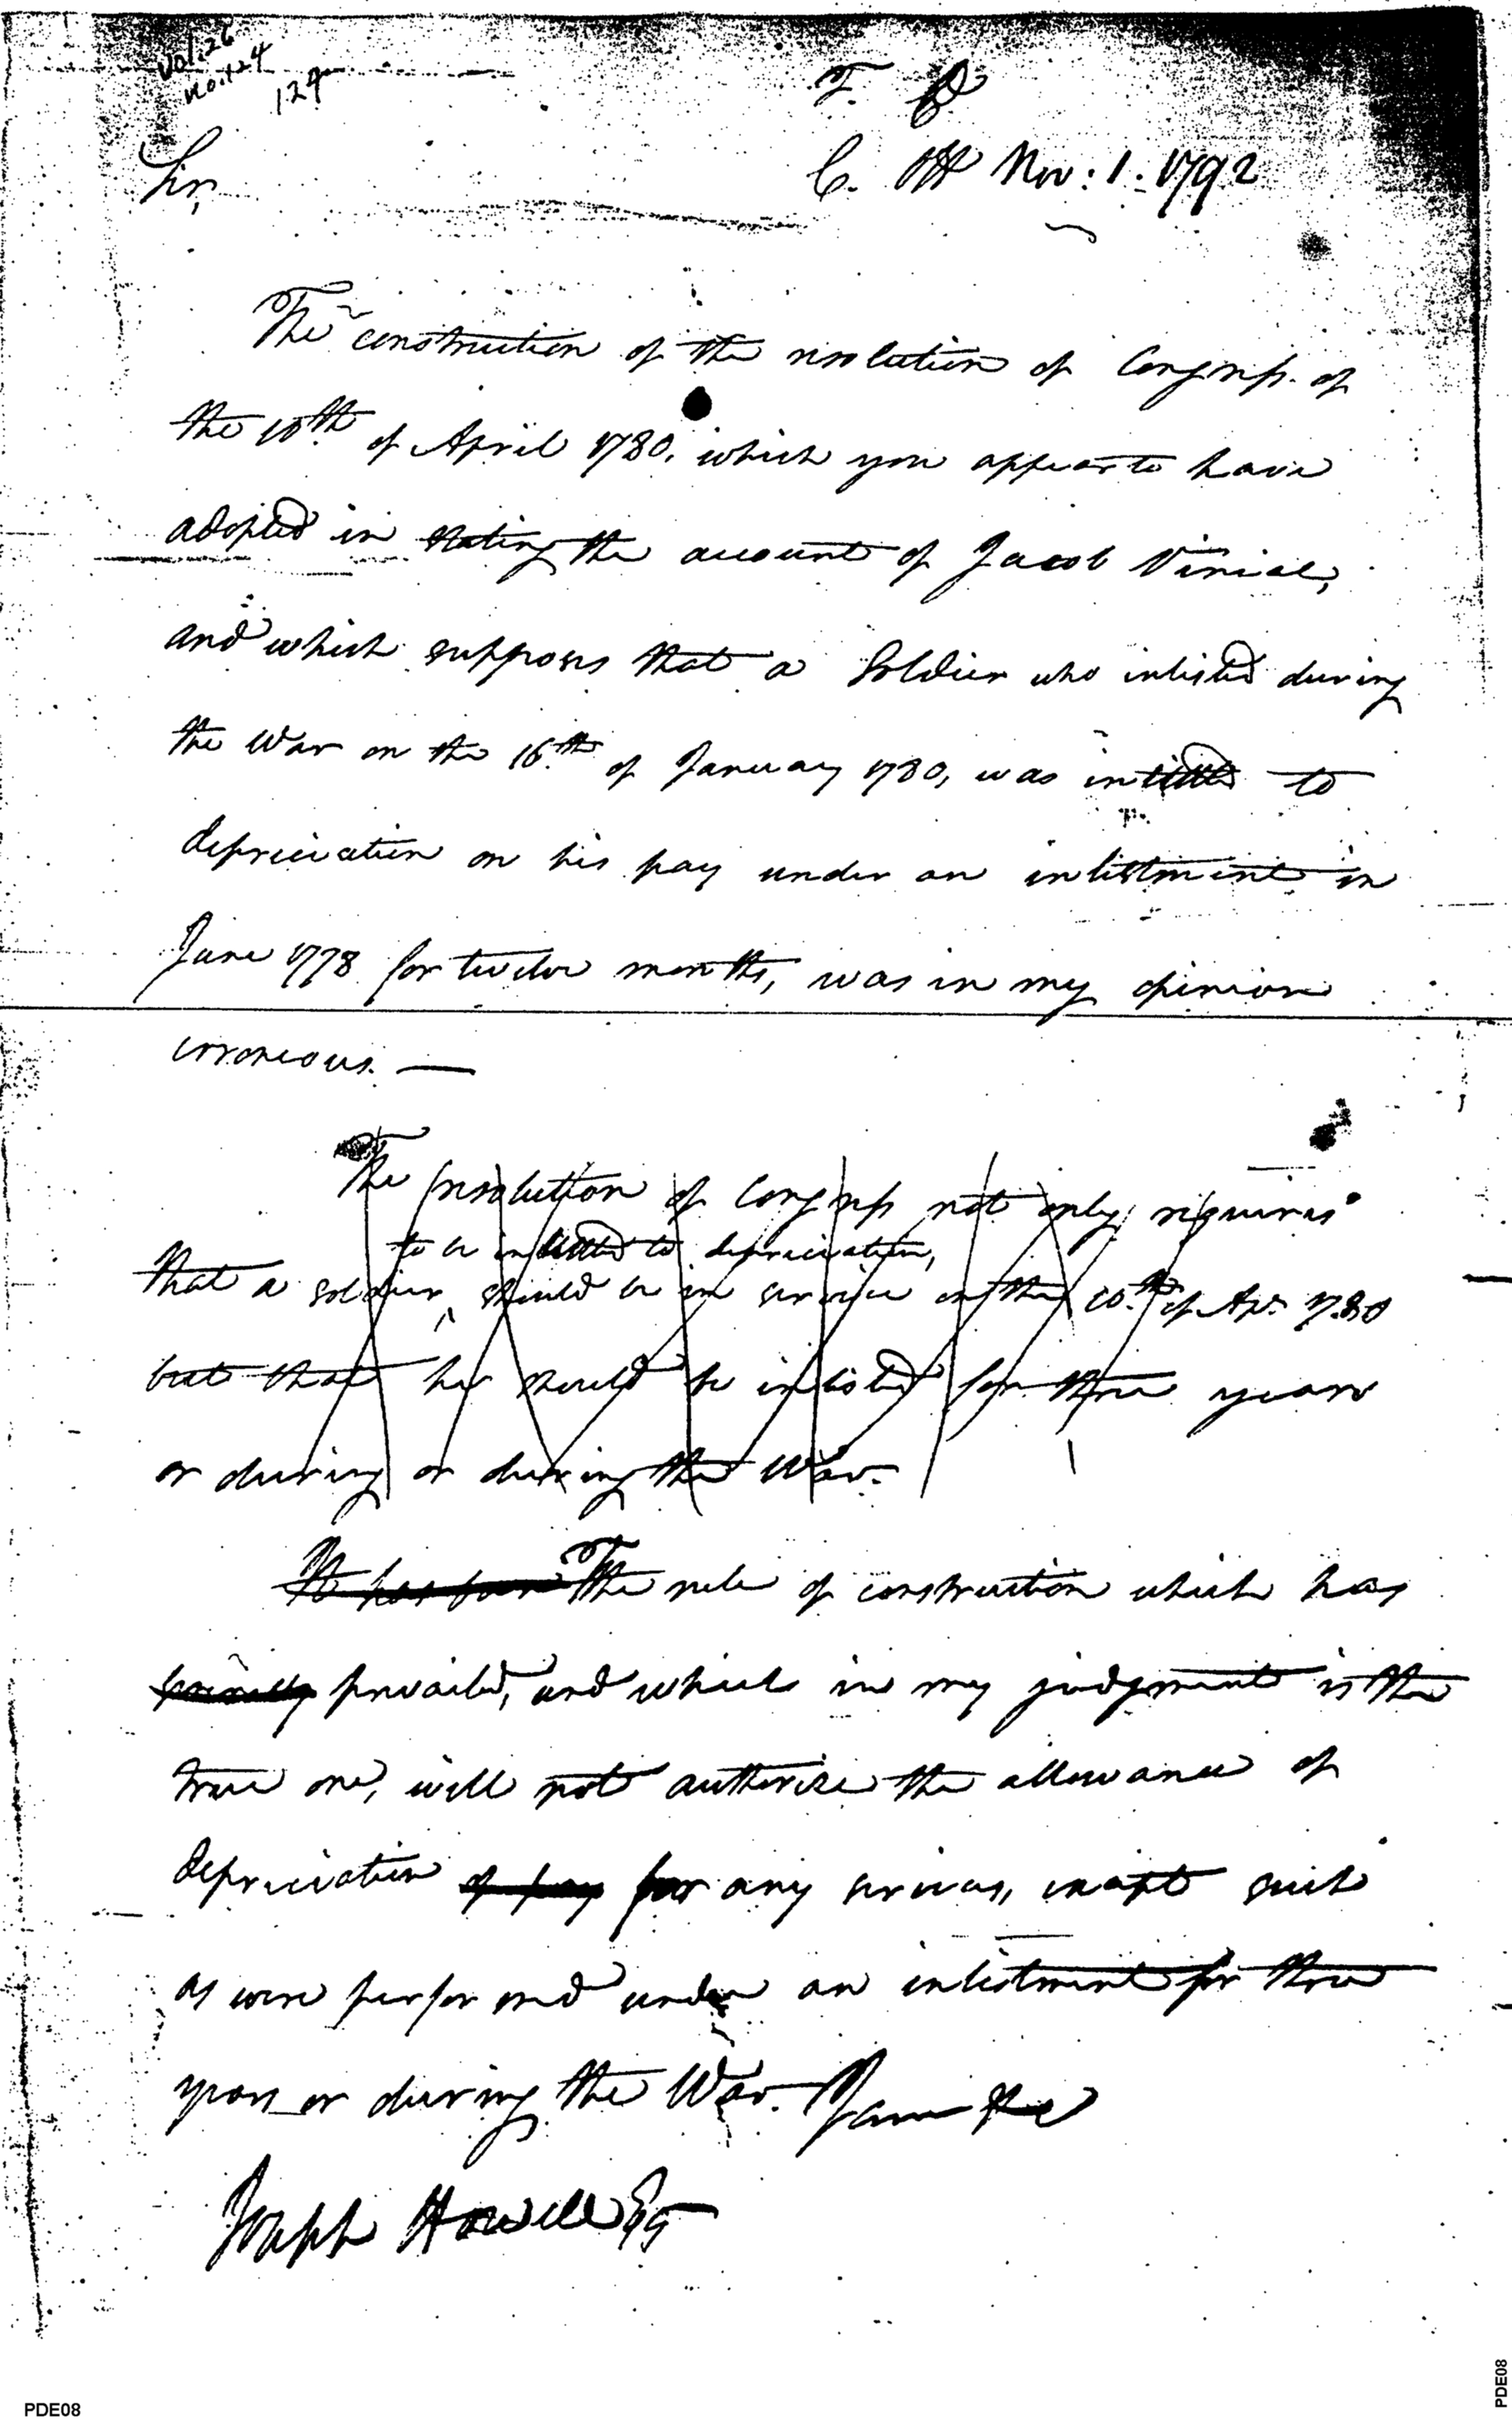 Vol: 26
no. 124
124
T. D
C. Off Nov: 1. 1792
Sir,
The construction of the resolution of Congress. of
the 10th. of April 1780. which you appear to have
adopted in stating the account of Jacob
and which supposes that a Soldier who inlisted during
the War on the 16th. of January 1780, was intitled to
depreciation on his pay under an inlistment in
June 1778 for twelve months, was in my opinion
erroneous. —
The resolution of Congress not only requires
to be intitled to depreciation,
that a soldier, should be in service on the 10th. of Apr. 1780
but that he should be inlisted for three years
or during or during the War.
It has been The rule of construction which has
prevailed, and which in my judgment is the
true one, will not authorize the allowance of
depreciation of pay for any services, except such
as were performed under an inlistment for three
years or during the War. I am &c
Joseph Howell Esq
PDE08
PDE08